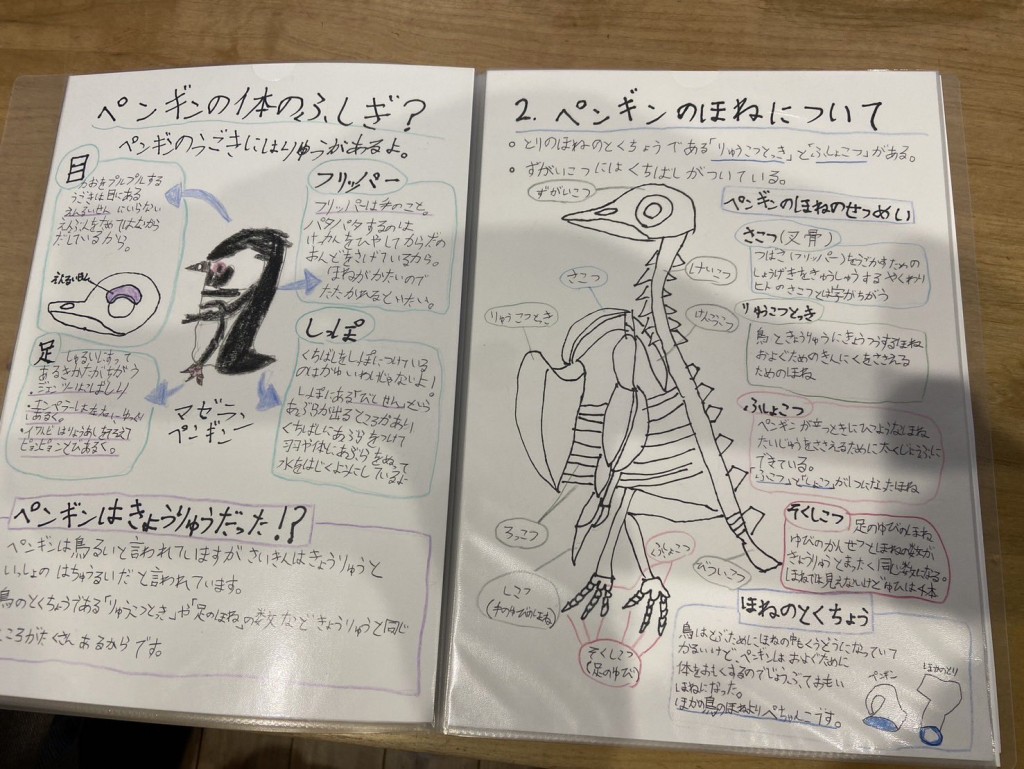 ペンギンの体のふしぎ?
ペンギンのうごきにはりゆうがあるよ。
目
かおをプルプルする
うごきは目にある
えんるいせんにいらない
えんぶんをためてはなから
だしているから。
えんるいせん
フリッパー
フリッパーは手のこと。
パタパタするのは
けっかんをひやしてからだの
おんどをさげているから。
ほねがかたいので
たたかれるといたい。
足
しゅるいによって
あるきかたがちがう
・ジェンツーはこばしり
・エンペラーは
あるく。
・イワトビはりょうあしをそろえて
ピョンピョンとびあるく。
マゼラン
ペンギン
しっぽ
くちばしをしっぽにつけている
のはかゆいわけじゃないよ!
しっぽにある「びしせん」という
あぶらが出るところがあい
くちばしにあぶらをつけて
羽や体にあぶらをぬって
水をはじくようにしているよ
ペンギンはきょうりゅうだった!?
ペンギンは鳥るいと言われていますがさいきんはきょうりゅうと
いっしょの はちゅうるいだと言われています。
鳥のとくちょうである「りゅうこつとっき」や「足のほね」の数などきょうりゅうと同じ
ところがたくさんあるからです。
2. ペンギンのほねについて
○ とりのほねのとくちょうである「りゅうこつとっき」と「ふしょこつ」がある。
○ ずがいこつにはくちばしがついている。
ずがいこつ
けいこつ
さこつ
りゅうこつとっき
けんこうこつ
ろっこつ
しこつ
(手のゆびのほね)
ふしょこつ
びついこつ
そくしこつ
(足のゆび)
ペンギンのほねのせつめい
さこつ(叉骨)
つばさ(フリッパー)をうごかすための
しょうげきをきゅうしゅうするやくわり
ヒトのさこつとは字がちがう
りゅうこつとっき
鳥ときょうりゅうにきょうつうするほね
およぐためのきんにくをささえる
ためのほね
ふしょこつ
ペンギンが立つときにひつようなほね
たいじゅうをささえるために太くじょうぶに
できている。
「ふこつ」と「しょこつ」がいつになったほね
そくしこつ
足のゆびのほね
ゆびのかんせつとほねの数が
きょうりゅうとまったく同じ数になる。
ほねでは見えないけどゆびは4本
ほねのとくちょう
鳥はとぶためにほねの中もくうどうになっていて
かるいけど、ペンギンは およぐために
体をおもくするのでじょうぶでおもい
ほねになった。
ほかの鳥のほねよりぺちゃんこです。
ペンギン
ほかのとり